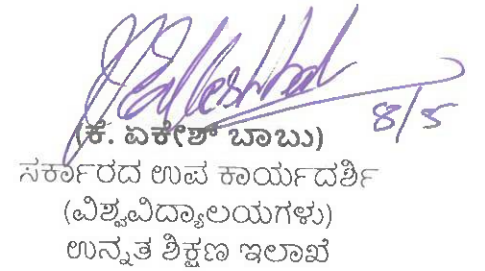 8/5
(ಕೆ. ಏಕೇಶ್ ಬಾಬು)
ಸರ್ಕಾರದ ಉಪ ಕಾರ್ಯದರ್ಶಿ
(ವಿಶ್ವವಿದ್ಯಾಲಯಗಳು)
ಉನ್ನತ ಶಿಕ್ಷಣ ಇಲಾಖೆ